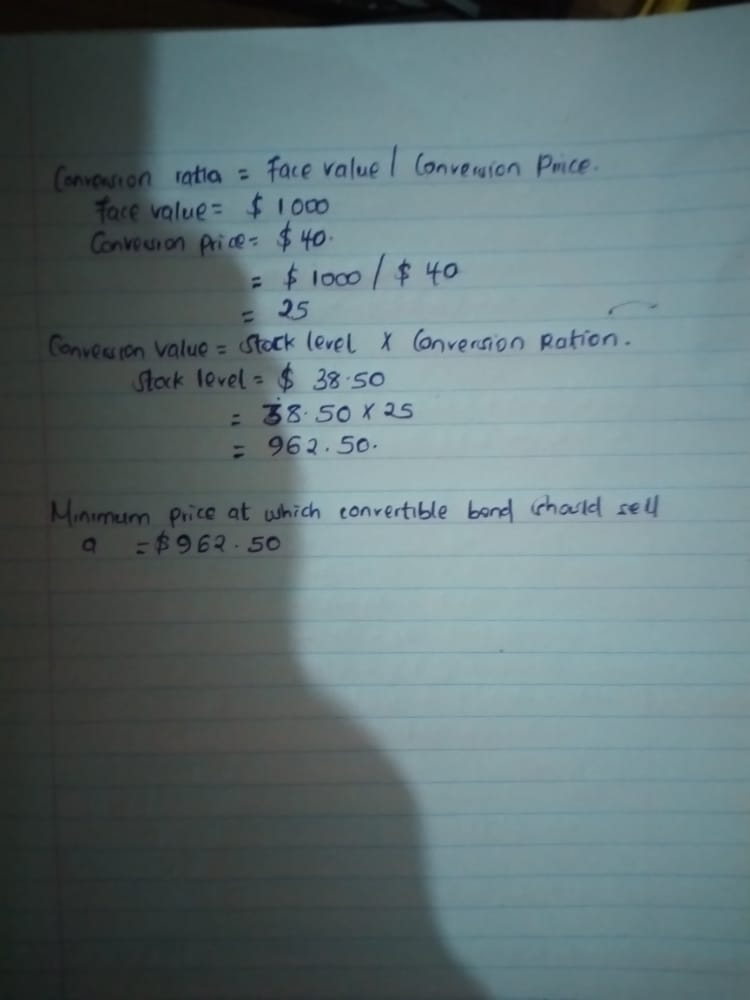 Conversion ratio = Face value / Conversion Price.
Face value = $ 1000
Conversion price = $ 40.
= $ 1000 / $ 40
= 25
Conversion value = Stock level X Conversion Ration.
Stock level = $ 38.50
= 38.50 X 25
= 962.50.
Minimum price at which convertible bond should sell
a = $ 962.50